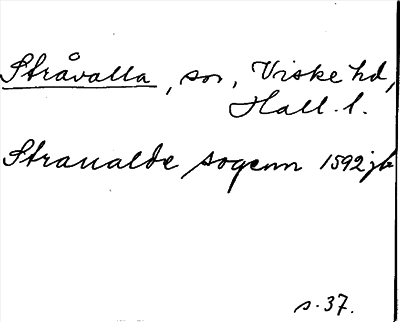 Stråvalla, sn, Viske hd,
Hall. l.
Straualde sogenn 1592 jb
s. 37.